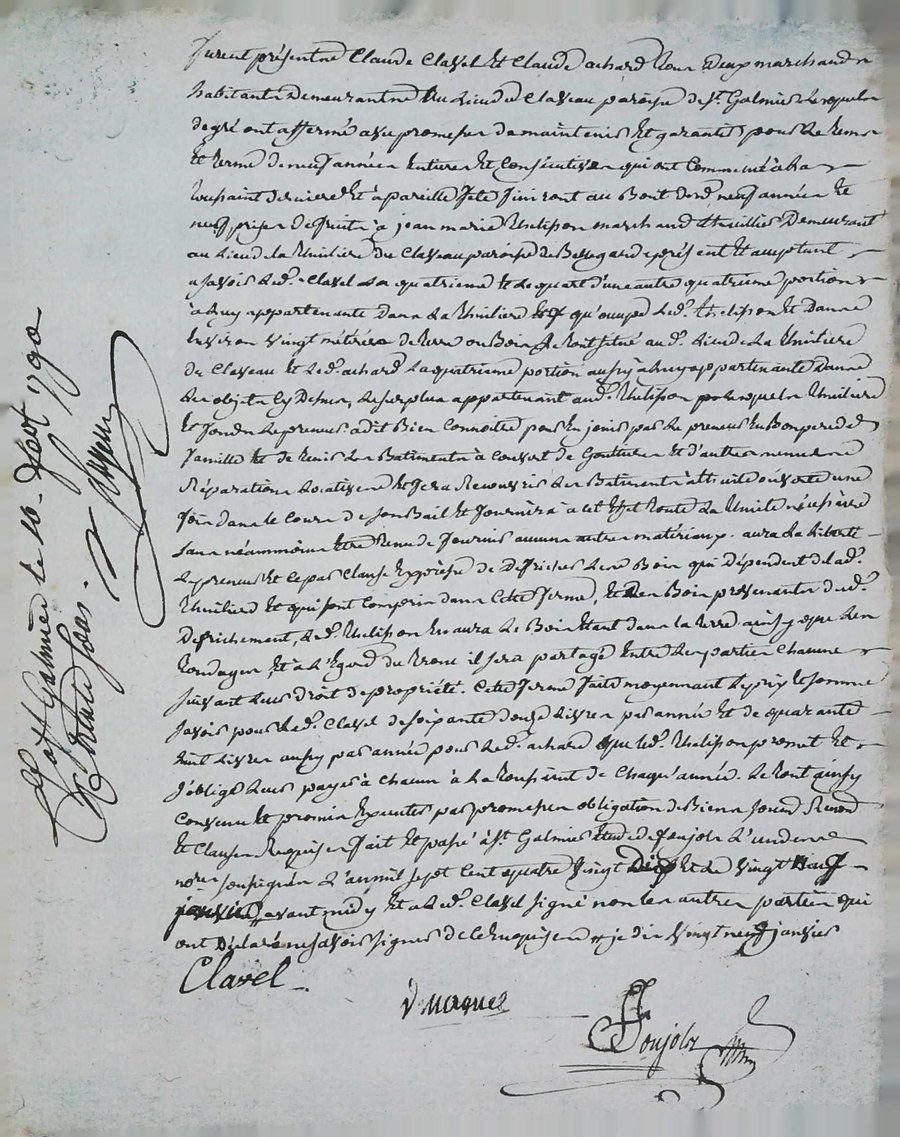 furent présents Claude Clavel et Claude achard tous deux marchands
habitants demeurants au Lieu du Claveau paroisse de St. Galmier Lesquels
de gré ont affermé avec promesse de maintenir et garantir pour Le tems
et terme de neuf années entieres et Consécutives qui ont Commencé à La
toussaint derniere et à pareille fete finiront au Bout desd. neuf années et
neuf prises de fruits à jean marie thelisson marchand thuillier Demeurant
au Lieu de la thuiliere du Claveau paroisse de Bellegarde present et acceptant
a savoir Led. Clavel La quatrieme et Le quart d'une autre quatrieme portion
à Luy appartenante Dans La thuiliere qu'occupe Led. thelisson et Dans
environ vingt métérées de terre ou Bois Le tout situé aud. Lieu de La thuiliere
du Claveau et Led. achard La quatrieme portion aussy à Luy appartenante Dans
Les objets Cy Dessus, Le surplus appartenant aud. thelisson pour Laquelle thuiliere
et fonds Le preneur a dit Bien Connoitre pour En jouir par Le preneur En Bon pere de
famille et de tenir Les Batiments à Couvert de Gouttieres et d'autres menues
Réparations Locatives et fera Recouvrir Les Batiments à thuile ouverte une
fois dans le Cours de son Bail et fournira à cet effet toute La thuile nécessaire
sans néammoins etre tenu de fournir aucuns autres matériaux. aura La Liberté
Le preneur et ce par Clause Expresse de Défricher Les Bois qui Dépendent de lad.
thuiliere et qui sont Compris dans Cette ferme, et des Bois provenants dud.
Defrichement, Led. thelisson En aura Le Bois Etant dans la terre ainsy que Les
Rondages, et à L'Egard du tronc il sera partagé Entre Les parties Chacune
suivant Leur Droit de propriété. Cette ferme faite moyennant Le prix et somme
savoir pour Led. Clavel de soixante douze Livres par année et de quarante
huit Livres aussy par année pour Led. achard que Led. thelisson promet et
s'oblige Leur payer à Chacun à La toussaint de Chaqu'année. Le tout ainsy
Convenu et promis Executer par promesses obligation de Biens soumd. Renond.
et Clauses Requises fait et passé à St. Galmier Etude de foujols L'un des
nores. soussignés L'an mil sept Cent quatre vingt Dix et Le vingt neuf
janvier avant midy et a Led. Clavel signé non les autres parties qui
ont Déclaré ne savoir signer de Ce Enquises # je dis vingt neuf janvier
Clavel
Foujols
à St Galmier Le 10. fevr. 1790